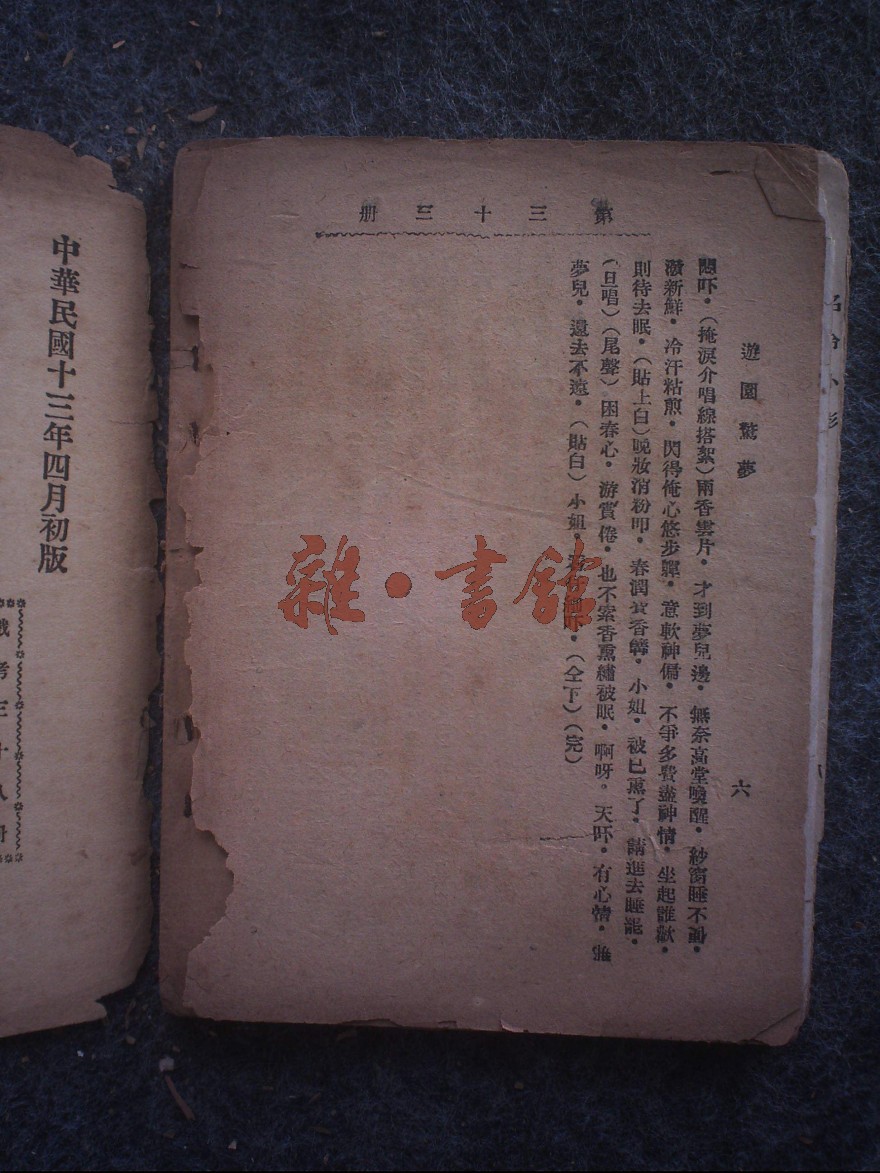 第三十三册
遊園驚夢
六
悶吓·（掩淚介唱線搭絮）雨香雲片·才到夢兒邊·無奈高堂喚醒·紗窗睡不便·
潑新鮮·冷汗粘煎·閃得俺心悠步嚲·意軟神偏·不爭多費盡神情·坐起誰歡·
則待去眠·（貼上白）晚妝消粉印·春潤費香篝·小姐·被已熏了·請進去睡罷·
（旦唱）（尾聲）困春心·游賞倦·也不索香熏繡被眠·啊呀·天吓·有心情·那
夢兒·還去不遠·（貼白）小姐·（仝下）（完）
中華民國十三年四月初版
戲考三十八冊
雜·書館